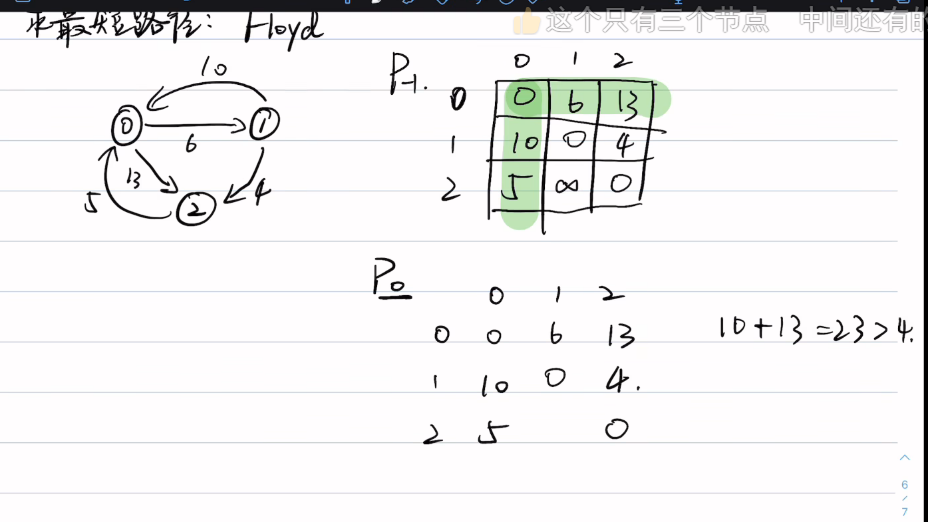 求最短路径: Floyd
这个只有三个节点 中间还有的
10
0 1
6
13
5 4
2
P-1.
0 1 2
0 0 6 13
1 10 0 4
2 5 ∞ 0
P0
0 1 2
0 0 6 13
1 10 0 4.
2 5 0
10+13=23>4.
6
/
7